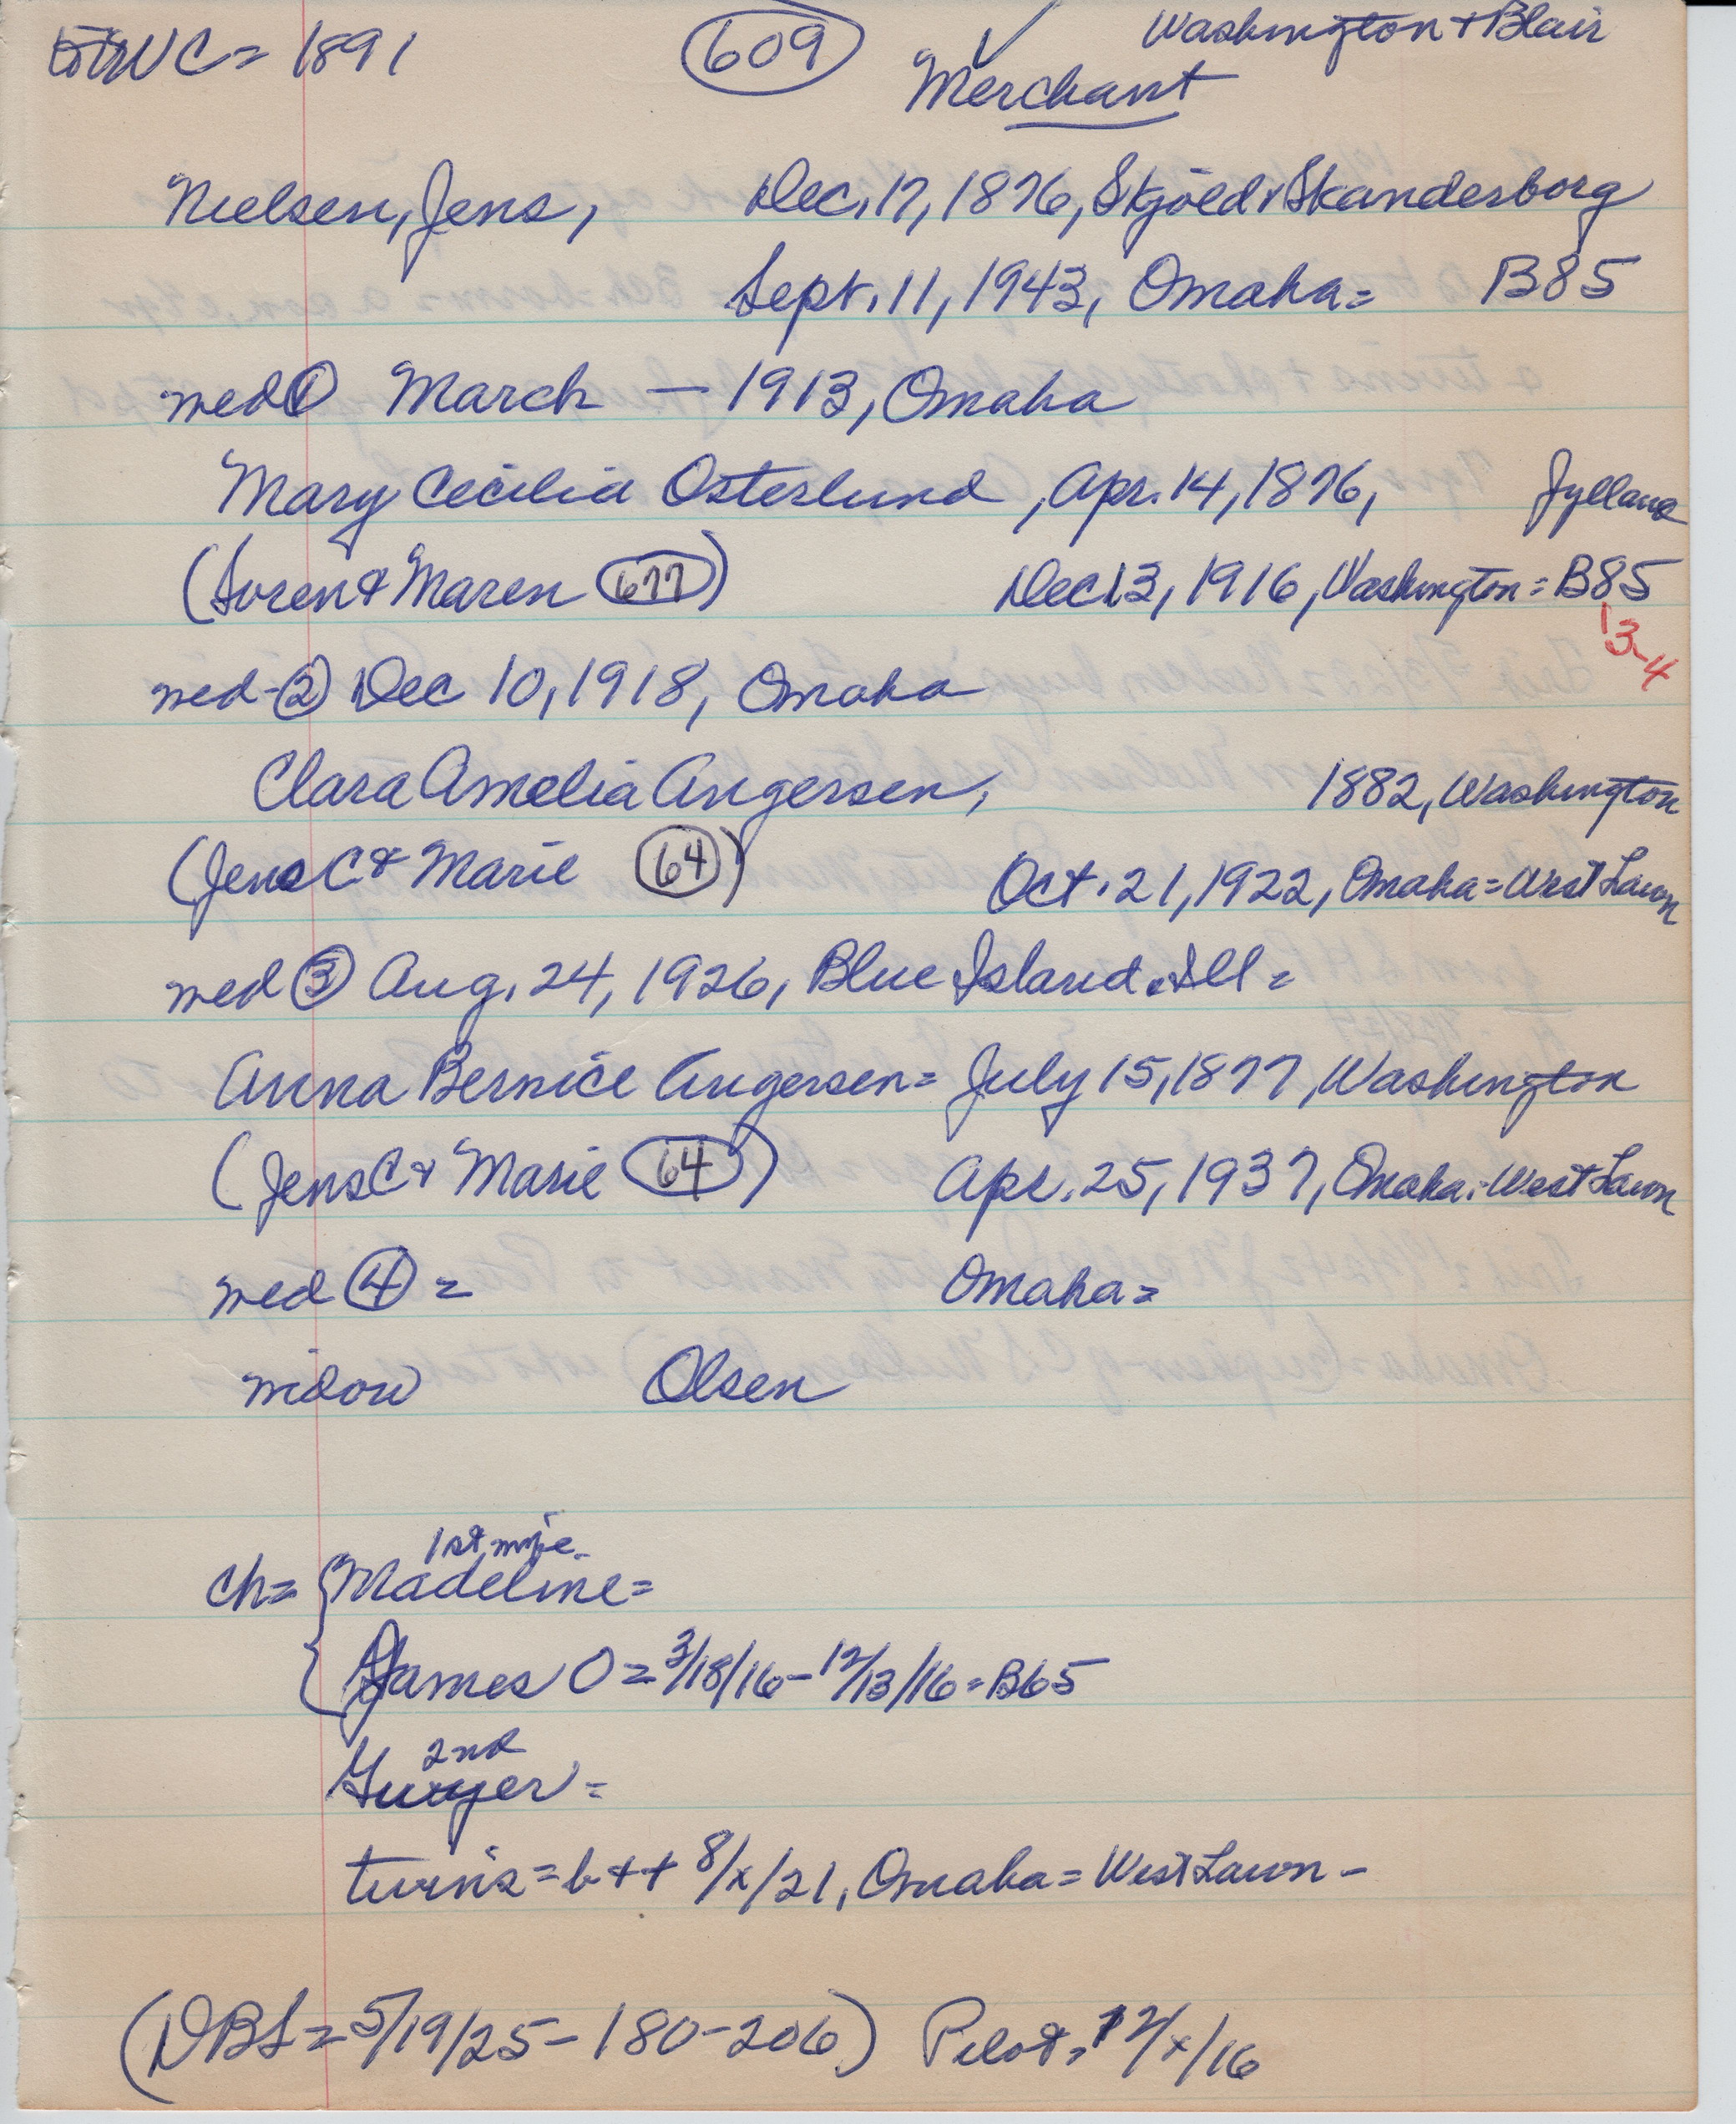 WC = 1891 609 ✓ Washington + Blair
Merchant
Nielsen, Jens, Dec. 17, 1876, Skjöld + Skanderborg
Sept. 11, 1943, Omaha = B85
med ① March — 1913, Omaha
Mary Cecilia Osterlund, Apr. 14, 1876, Jylland
(Soren & Maren 677) Dec 13, 1916, Washington = B85
13-4
med-② Dec 10, 1918, Omaha
Clara Amelia Angersen, 1882, Washington
(Jens C & Marie 64) Oct. 21, 1922, Omaha = West Lawn
med ③ Aug. 24, 1926, Blue Island, Ill =
Anna Bernice Angersen = July 15, 1877, Washington
(Jens C & Marie 64) Apr. 25, 1937, Omaha = West Lawn
med ④ = Omaha =
widow Olsen
1st wife
ch = { Madeline =
James O = 3/18/16 - 12/13/16 = B65
2nd
=
twins = b + + 8/x/21, Omaha = West Lawn -
(DBS = 5/19/25 - 180-206) Pilot, 12/x/16